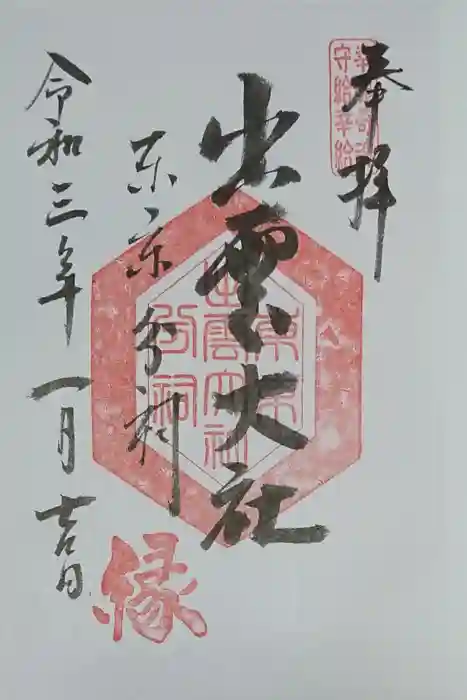 奉拝
出雲大社
東京分祠
令和三年一月吉日
東京
出雲大社
分祠
縁